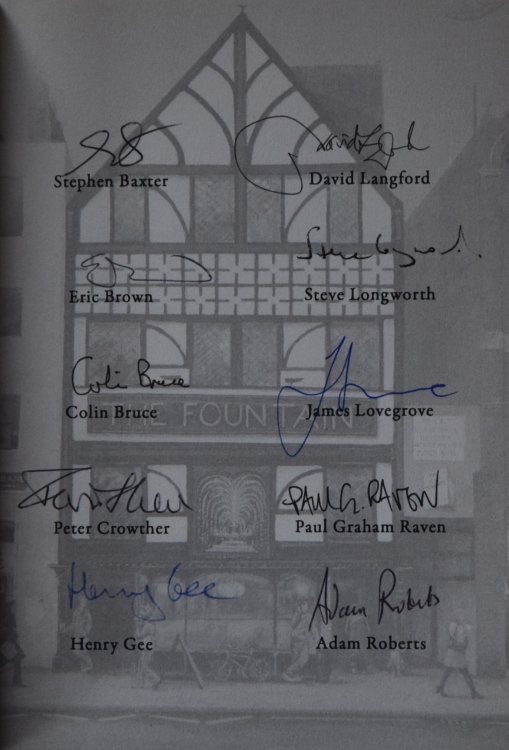 Stephen Baxter
David Langford
David Langford
Eric Brown
Steve Longworth
Steve Longworth
Colin Bruce
Colin Bruce
James Lovegrove
THE FOUNTAIN
Peter Crowther
PAUL G. RAVEN
Paul Graham Raven
Henry Gee
Henry Gee
Adam Roberts
Adam Roberts